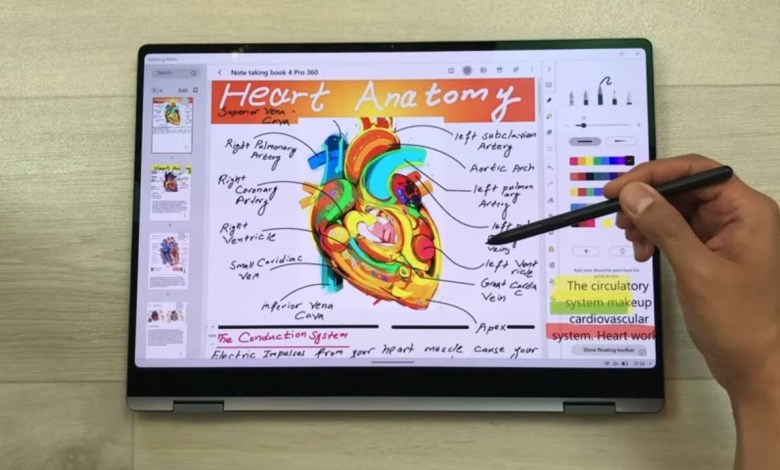 Samsung Notes
Search
Note taking book 4 Pro 360
Edit
Heart Anatomy
Superior Vena
Cava
Right Pulmonary
Artery
Right
Coronary
Artery
Right
Ventricle
Small Caridiac
Vein
inferior Vena
Cava
left subclavian
Artery
Aortic Arch
left pulmon
ary
Artery
left
veins
left Vent
ricle
Great Cardia
c
Vein
Apex
The Conduction System
Electric Impulses from your heart muscle cause your
Add your favourite pen here for
The circulatory
system makeup
cardiovascular
system. Heart work
Show floating toolbar